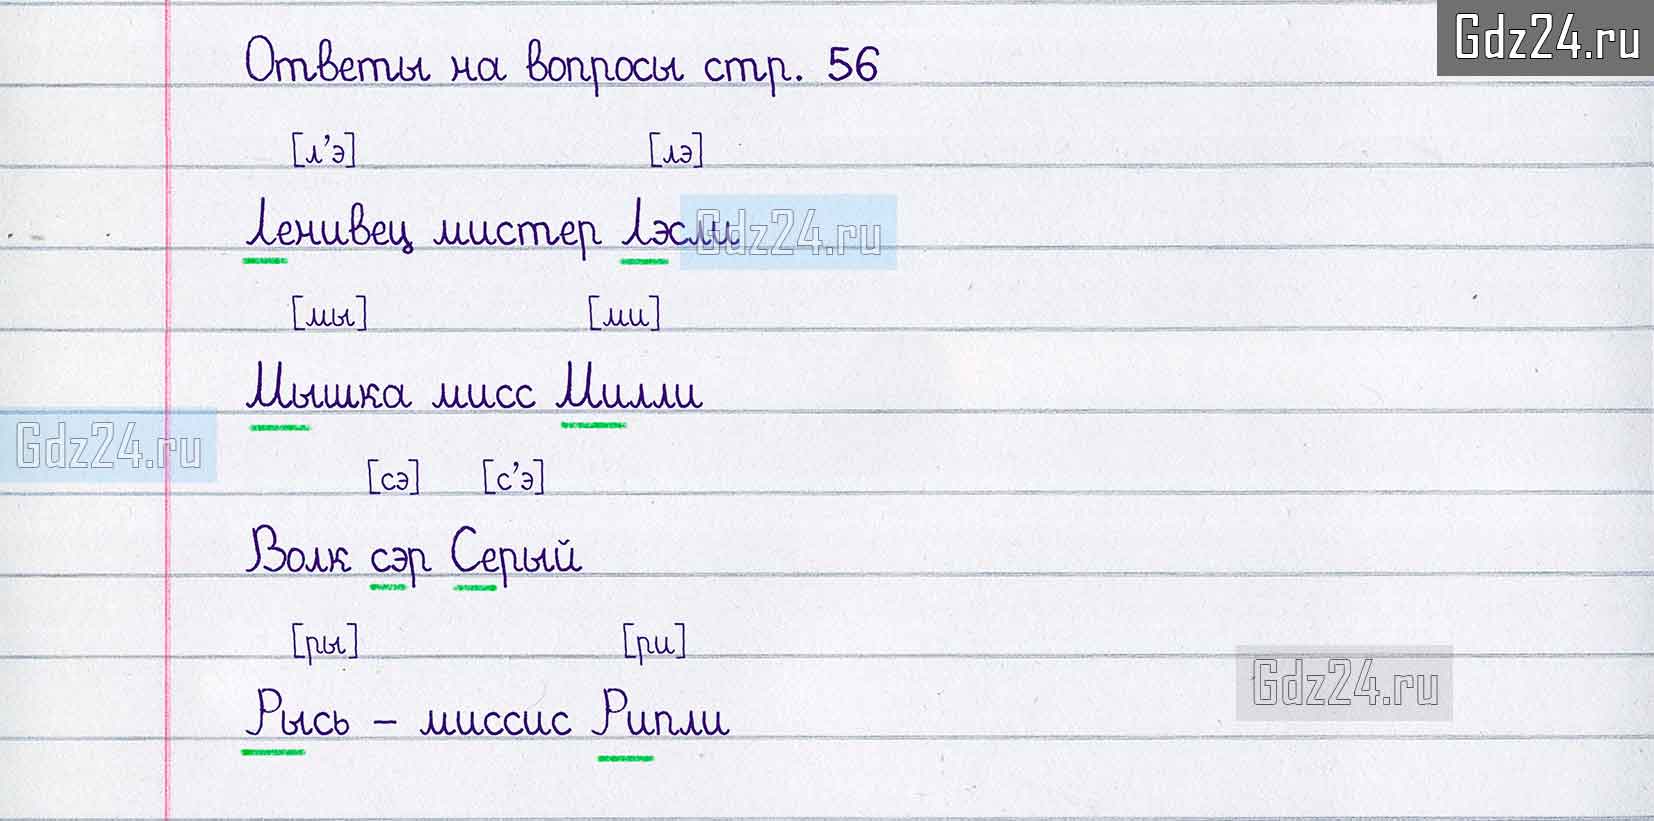 Gdz24.ru
Ответы на вопросы стр. 56
[л’э] [лэ]
Ленивец мистер Лэсли
Gdz24.ru
[мы] [ми]
Мышка мисс Милли
Gdz24.ru
[сэ] [с’э]
Волк сэр Серый
[ры] [ри]
Gdz24.ru
Рысь – миссис Рипли